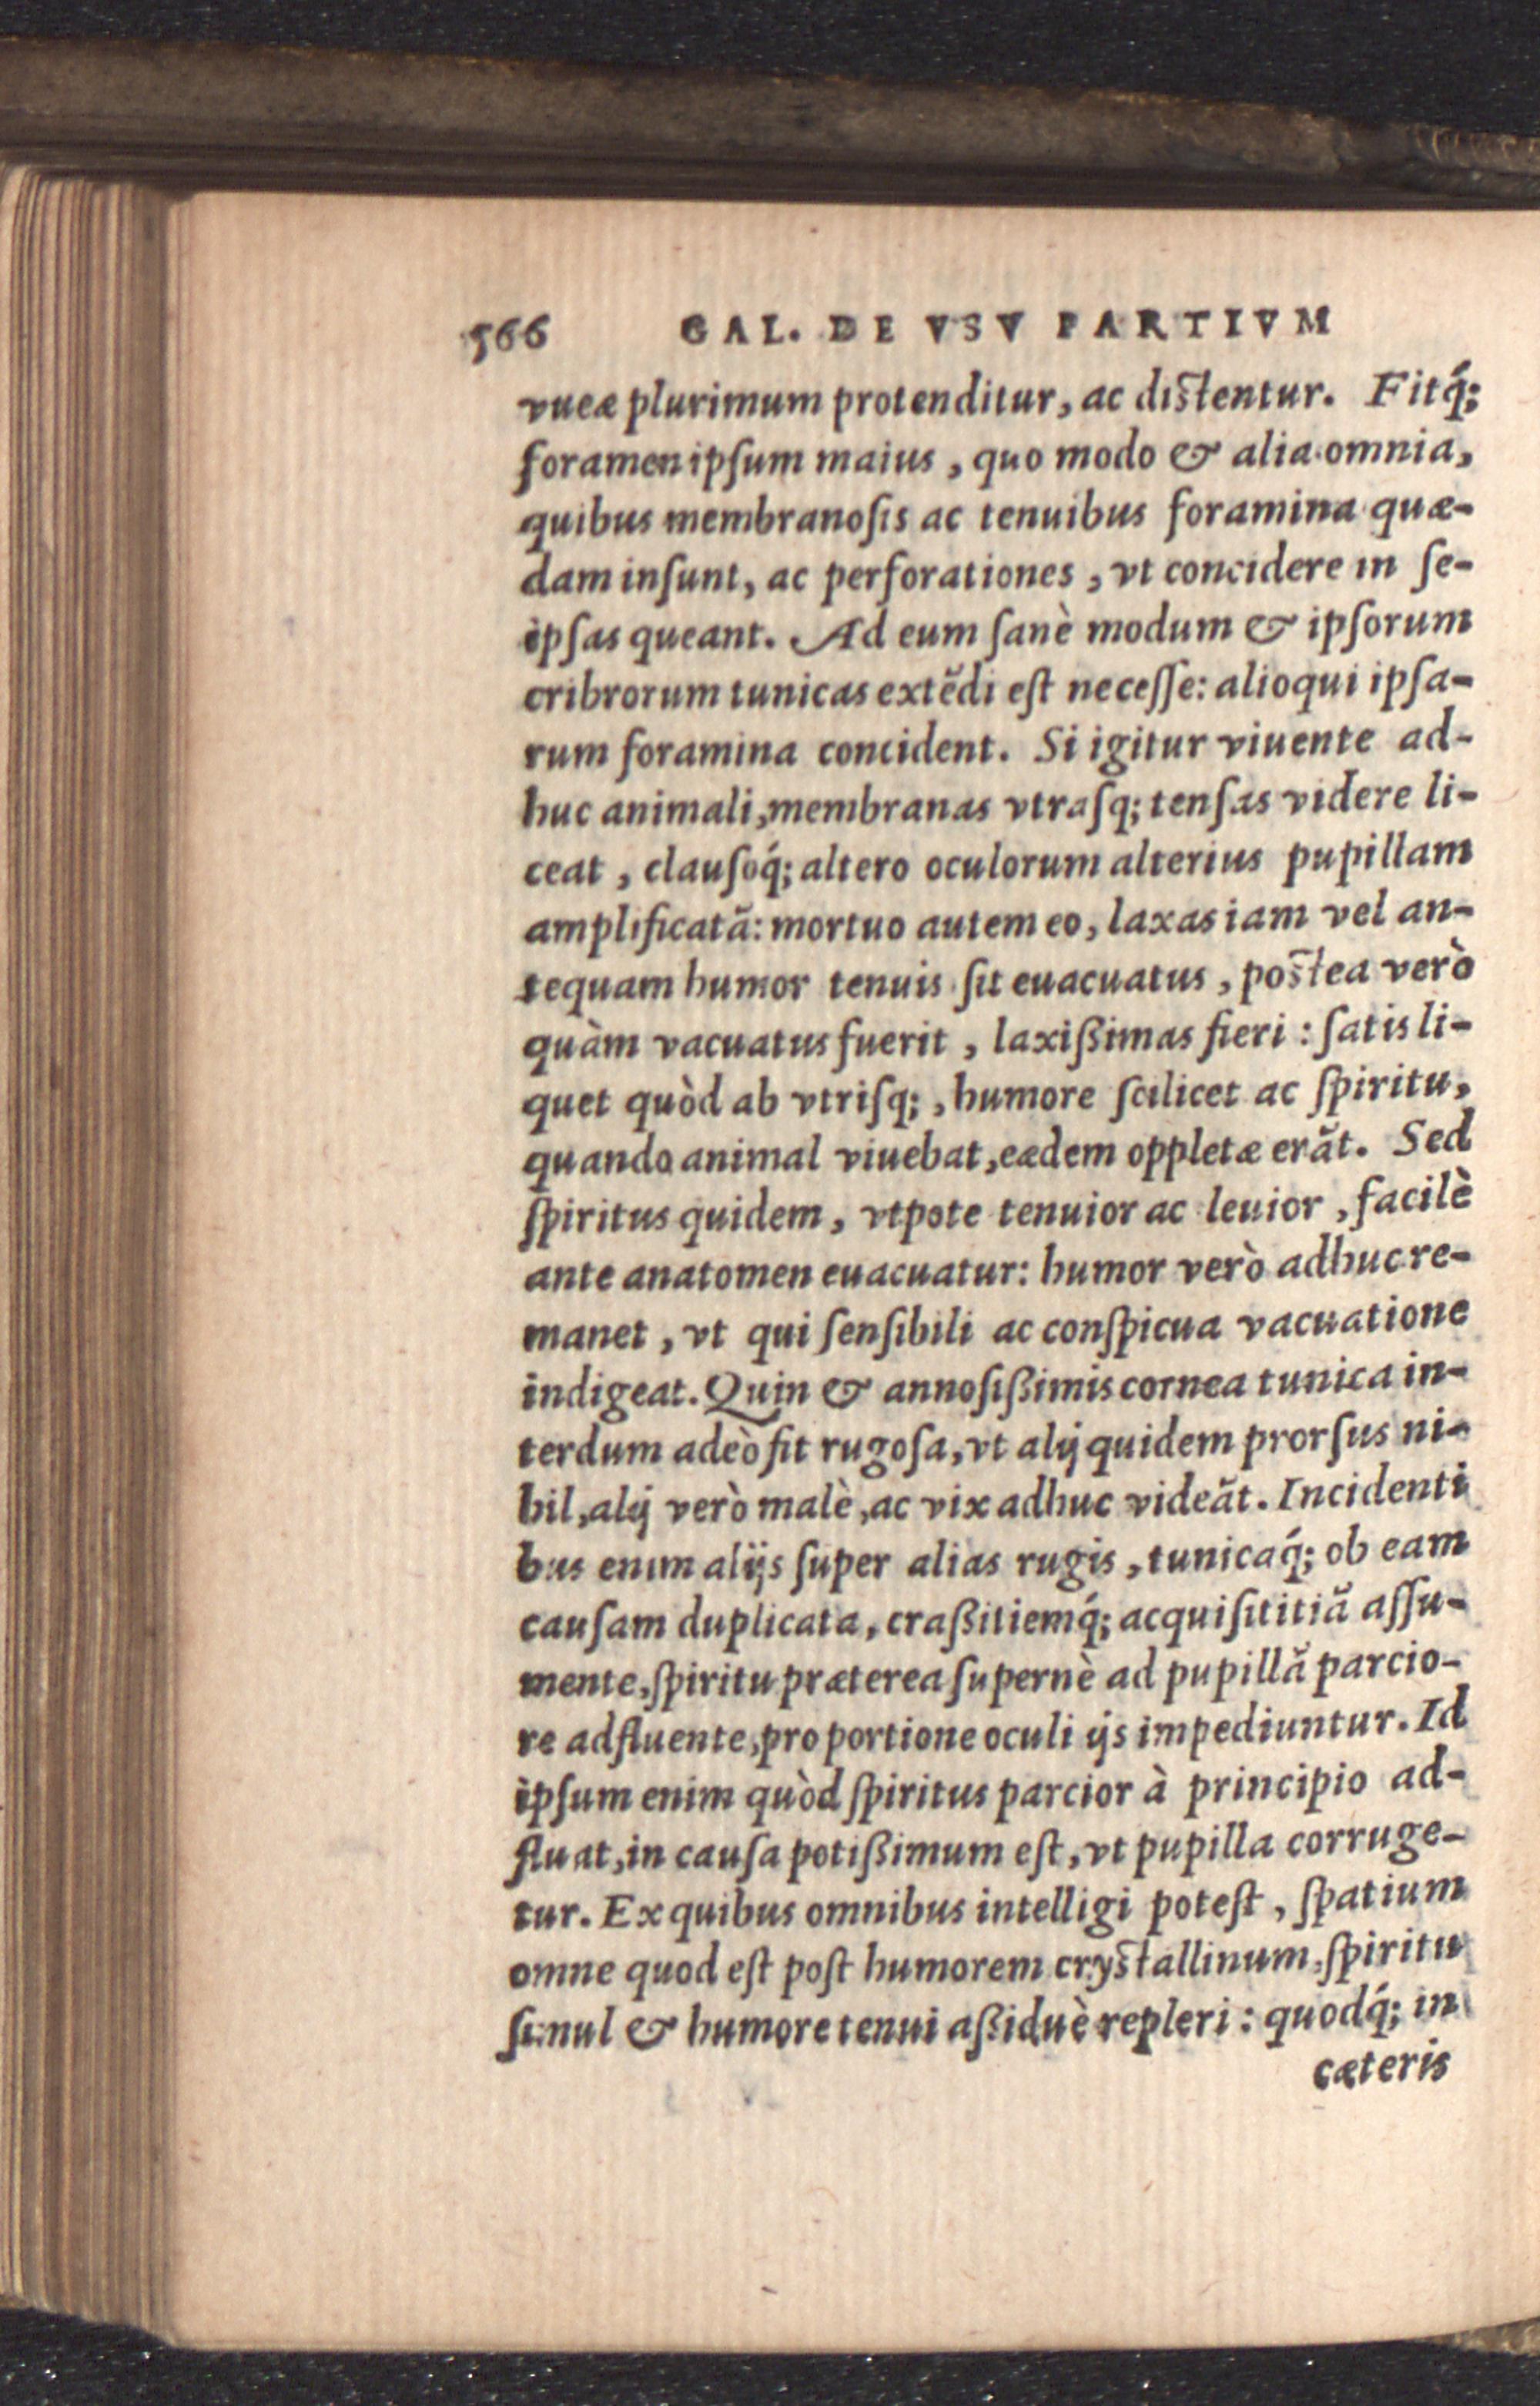 566 GAL. DE VSV PARTIVM
vueæ plurimum protenditur, ac distentur. Fitq́;
foramen ipſum maius, quo modo & alia omnia,
quibus membranoſis ac tenuibus foramina quæ-
dam inſunt, ac perforationes, vt concidere in ſe-
ipſas queant. Ad eum ſanè modum & ipſorum
cribrorum tunicas extẽdi eſt neceſſe: alioqui ipſa-
rum foramina concident. Si igitur viuente ad-
huc animali, membranas vtraſq; tenſas videre li-
ceat, clauſoq́; altero oculorum alterius pupillam
amplificatã: mortuo autem eo, laxas iam vel an-
tequam humor tenuis ſit euacuatus, postea verò
quàm vacuatus fuerit, laxißimas fieri: ſatis li-
quet quòd ab vtriſq;, humore ſcilicet ac ſpiritu,
quando animal viuebat, eædem oppletæ erãt. Sed
ſpiritus quidem, vtpote tenuior ac leuior, facilè
ante anatomen euacuatur: humor verò adhuc re-
manet, vt qui ſenſibili ac conſpicua vacuatione
indigeat. Quin & annoſißimis cornea tunica in-
terdum adeò fit rugoſa, vt alij quidem prorſus ni-
hil, alij verò malè, ac vix adhuc videãt. Incidenti
bus enim alijs ſuper alias rugis, tunicaq́; ob eam
cauſam duplicata, craßitiemq́; acquiſititiã aſſu-
mente, ſpiritu præterea ſupernè ad pupillã parcio-
re adfluente, pro portione oculi ijs impediuntur. Id
ipſum enim quòd ſpiritus parcior à principio ad-
fluat, in cauſa potißimum eſt, vt pupilla corruge-
tur. Ex quibus omnibus intelligi poteſt, ſpatium
omne quod eſt poſt humorem crystallinum, ſpiritu
ſimul & humore tenui aßiduè repleri: quodq́; in
cæteris